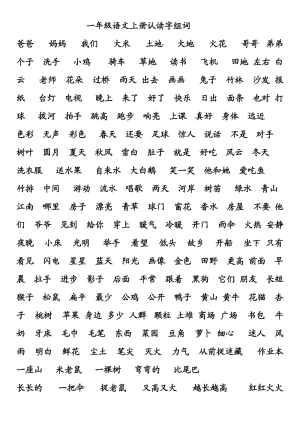 一年级语文上册认读字组词
爸爸 妈妈 我们 大米 土地 大地 火花 哥哥 弟弟
个子 洗手 小鸟 骑马 试试 读书 飞机 田地 左右 白
云 老师 花朵 过桥 雨天 出去 画画 兔子 竹林 沙发 报
纸 台灯 电视 晚上 来了 了不起 前面 日出 条条 也对 打
球 拔河 拍手 跳高 跑步 足球 上课 早上 真好 身体 远近
色彩 无声 彩色 春天 还要 无关 球迷 惊人 说话 不是 对手
树叶 圆月 夏天 风雪 雪白 肚子 就是 好吃 风云 冬天
洗衣服 送水果 自来水 大白鹅 笑一笑 他和她 爱吃鱼
竹排 中间 游动 流水 唱歌 两天 河岸 树子 绿水 青山
江南 哪里 房子 漂亮 青草 草原 花园 百花 香水 房屋 不要 他
们 爷爷 见到 给你 穿上 暖气 冷暖 开门 雨伞 火热 安静
夜晚 小床 光明 举手 看着 望着 低头 故乡 开船 坐下 只有
看见 闪电 星星 蓝天 阳光 画像 金色 田野 更高 前面 早
晨 拉手 进步 影子 后面 平常 跟着 黑狗 它们 朋友 长短
猴子 松鼠 最高 公鸡 公开 鸭子 黄山 黄牛 花猫 杏
子 桃树 苹果 身边 多少 一群 颗粒 土堆 商场 广场 书包 牛
奶 牙膏 毛巾 毛笔 东西 菜园 豆角 萝卜 细心 迷人 风
雨 明白 鲜花 尘土 笔尖 灭火 力气 从前捉迷藏 作业本
一座山 米老鼠 一本书 弯弯的 比尾巴
长长的 一把伞 捉老鼠 又高又大 越长越高 红红火火